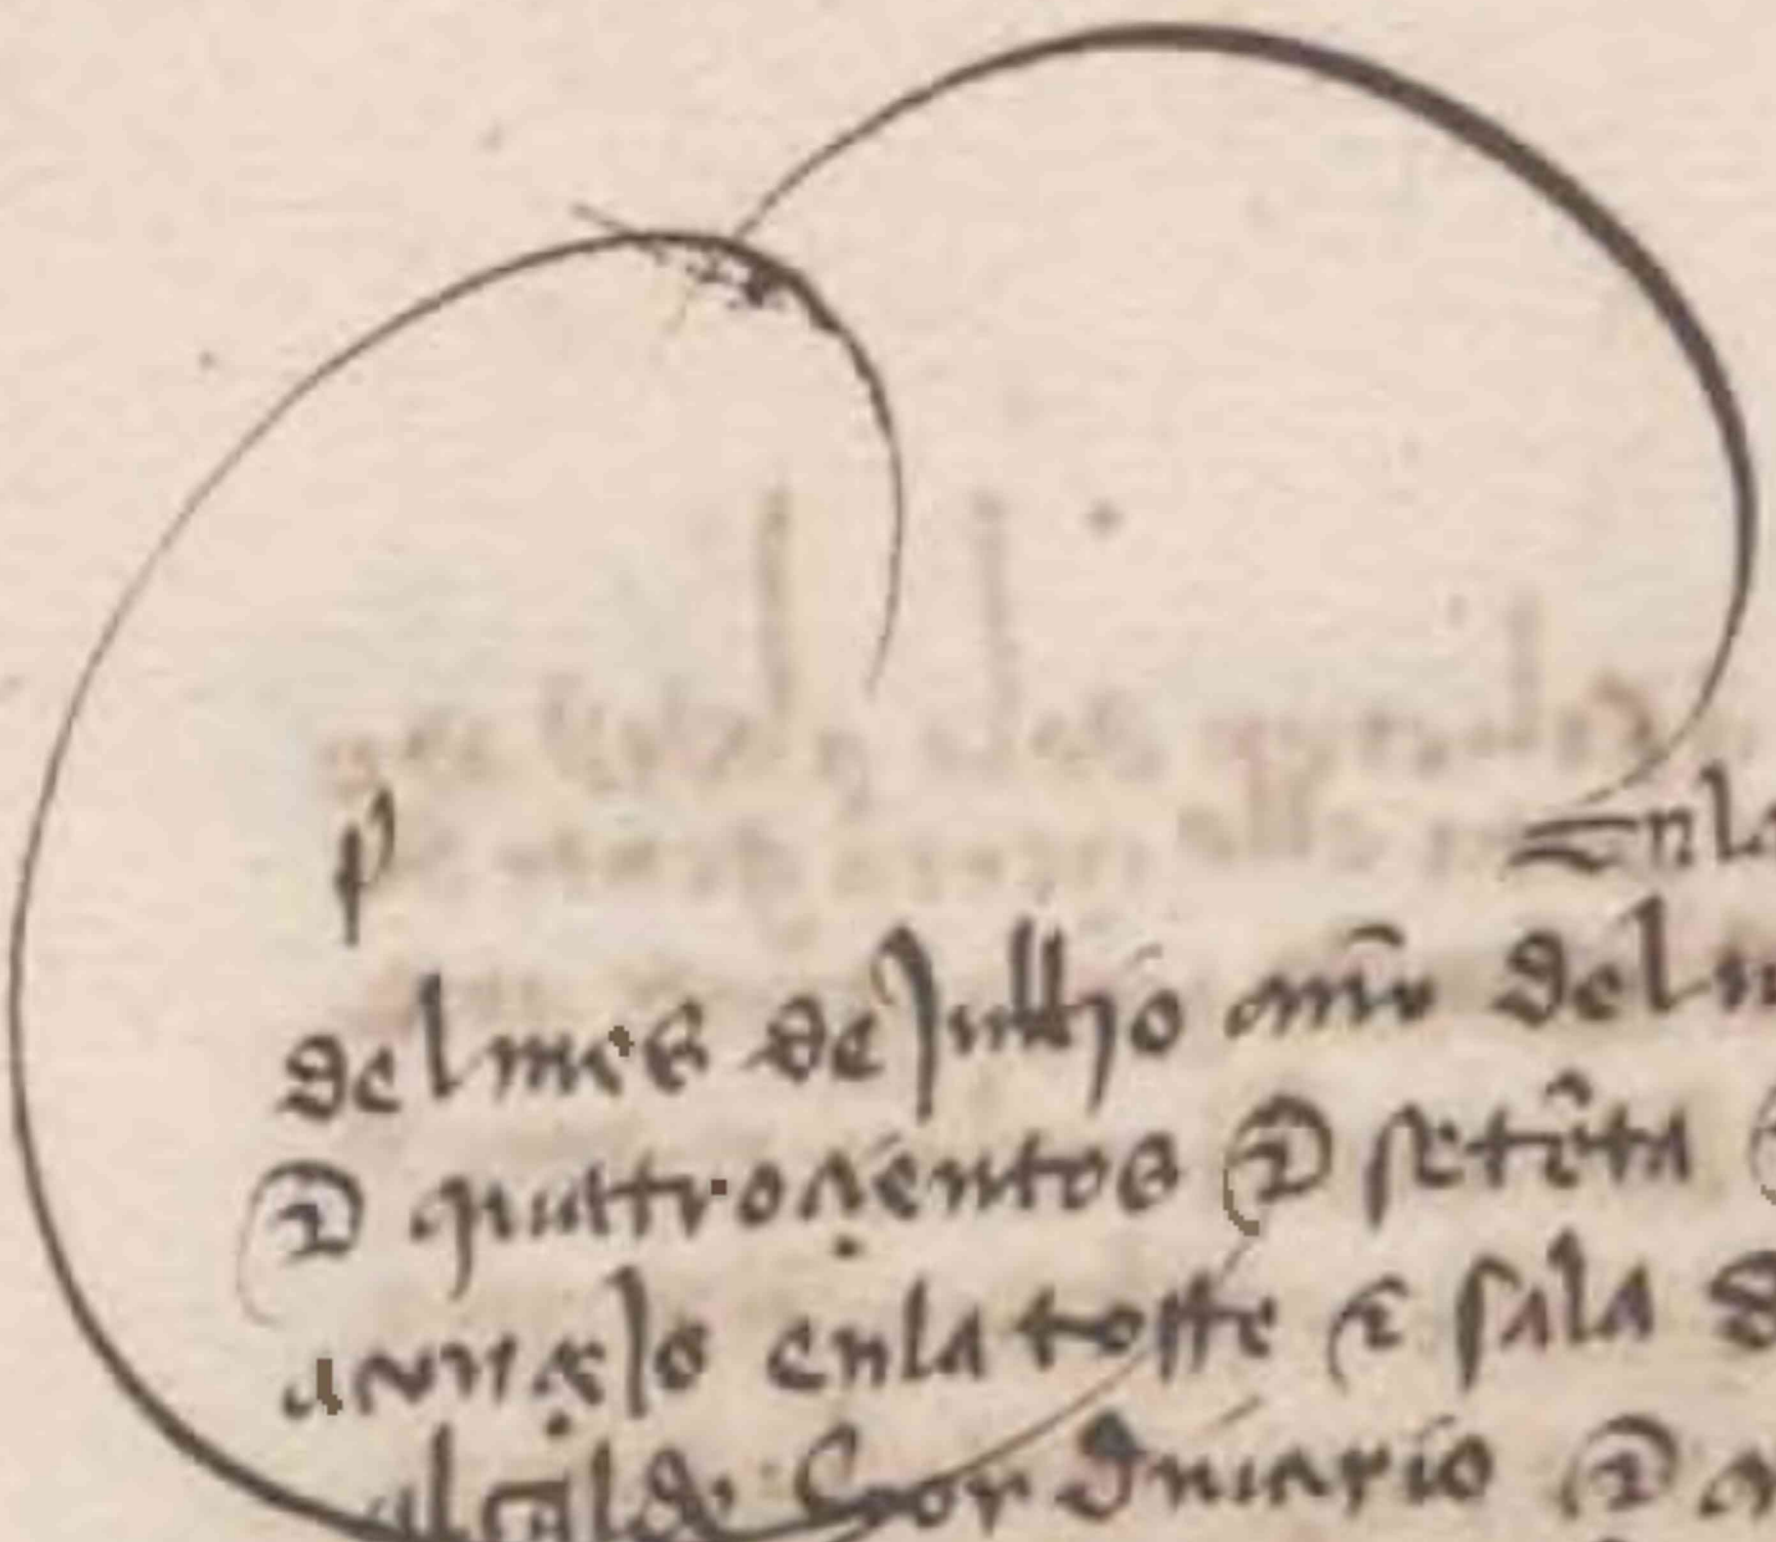 p
En la
del mes de Jullio año del n
E quatroçientos E setēta
conçejo en la torre e sala d
alcalde hordinario E